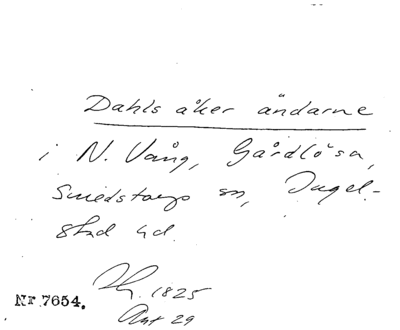 Dahls åker ändarne
i N. Vång, Gårdlösa,
Smedstorps sn, Ingel-
stad hd.
1825
Nr 7654.
Akt 29